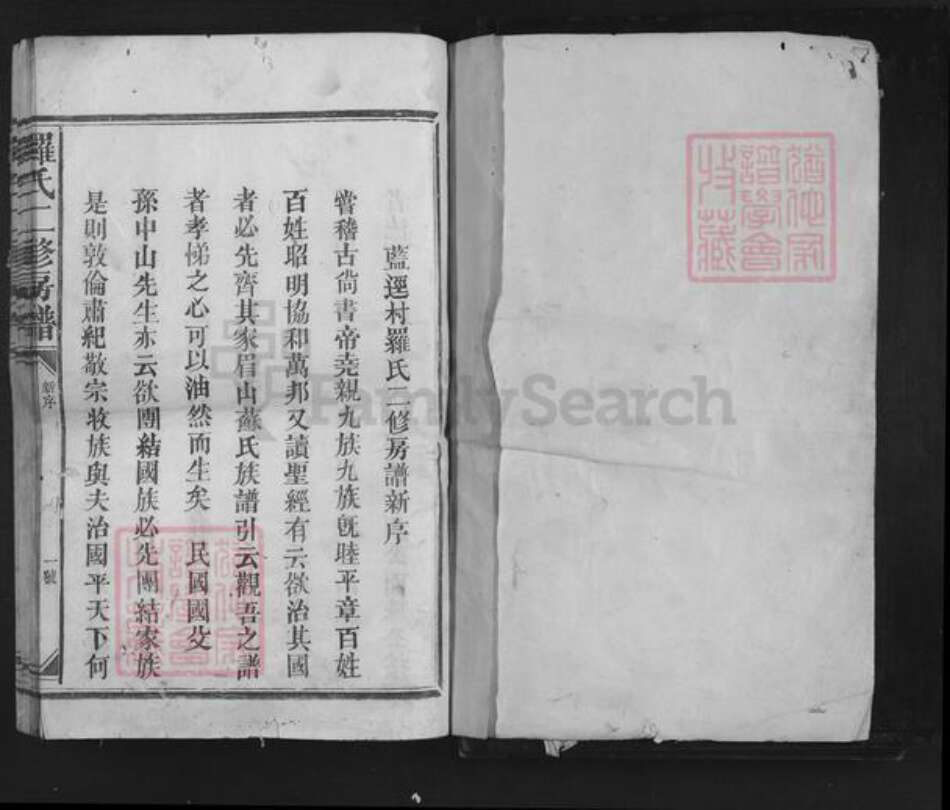 藍逕村羅氏二修房譜新序
嘗稽古尙書帝堯親九族九族旣睦平章百姓
百姓昭明協和萬邦又讀聖經有云欲治其國
者必先齊其家眉山蘇氏族譜引云觀吾之譜
者孝悌之心可以油然而生矣 民國國父
孫中山先生亦云欲團結國族必先團結家族
是則敦倫肅紀敬宗收族與夫治國平天下何
羅氏二修房譜
新序
一號
譜學會
收藏
FamilySearch